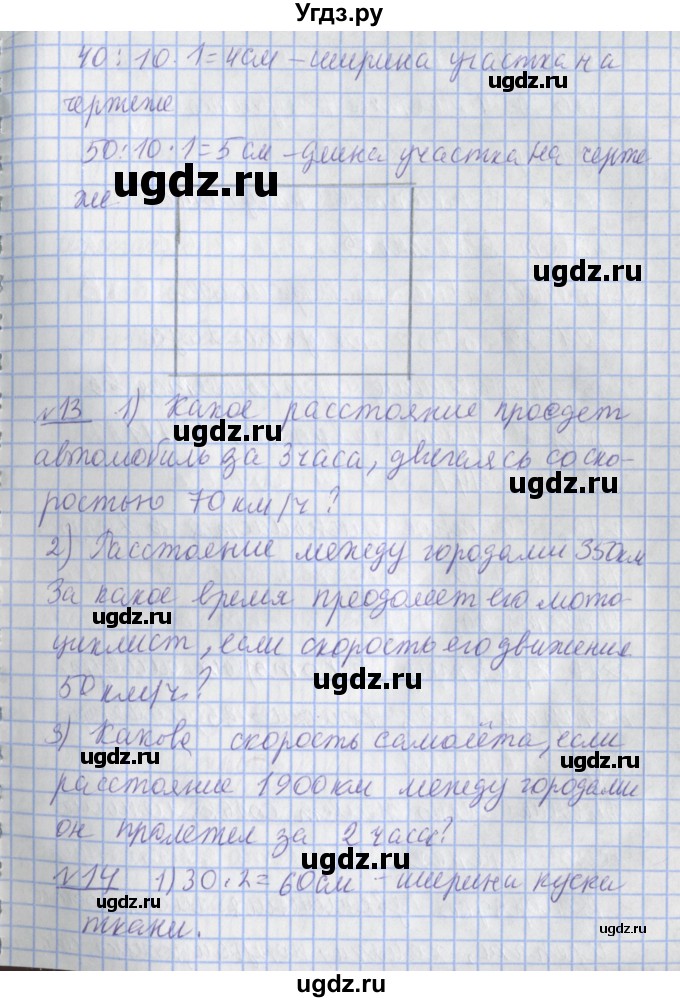 Угдз.ру
40:10·1=4см – ширина участка на
ugdz.ru
чертеже
50:10·1=5см – длина участка на черте
ugdz.ru
же
ugdz.ru
№13 1) Какое расстояние проедет
ugdz.ru
автомобиль за 3 часа, двигаясь со ско-
ugdz.ru
ростью 70 км/ч?
2) Расстояние между городами 350км
За какое время преодолеет его мото-
ugdz.ru
циклист, если скорость его движения
50 км/ч?
ugdz.ru
3) Какова скорость самолёта, если
ugdz.ru
расстояние 1900км между городами
он пролетел за 2 часа?
ugdz.ru
№14 1) 30·2=60см – ширина куска
ugdz.ru
ткани.
ugdz.ru
ugdz.ru